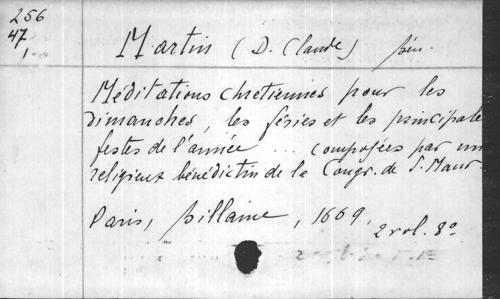 256
47
1
Martin (D. Claude) bén.
Méditations chretiennes pour les
dimanches, les féries et les principale
festes de l'année ... composées par un
religieux bénédictin de la Congr. de S. Maur.
Paris, Billaine, 1669,
2 vol. 8º